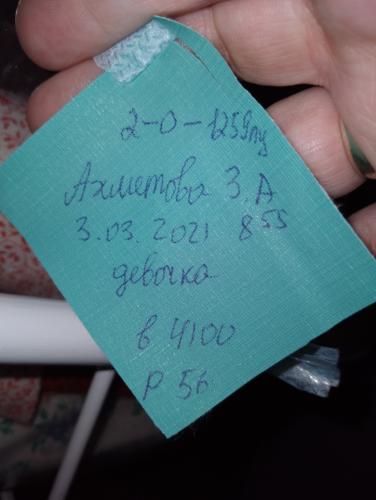 2-0-1259пу
Ахметова З.А
3.03.2021 8⁵⁵
девочка
в 4100
р 56